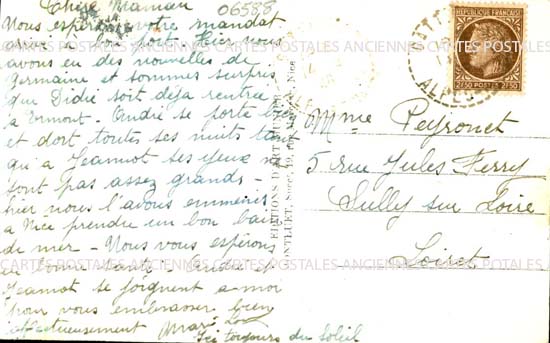 06588
Chère Maman
Nous espérons votre mandat
arrivé à bon port. Hier nous
avons eu des nouvelles de
Germaine et sommes surpris
que Didié soit déja rentrée
à Ormont. André se porte bien
et dort toutes ses nuits tant
qu'a Jeannot ses yeux ne
sont pas assez grands -
hier nous l'avons emmenés
a Nice prendre un bon bain
de mer - Nous vous espérons
en bonne santé André et
Jeannot se joignent a moi
pour vous embrasser bien
affectueusement
Ici toujours du Soleil
EDITIONS D'ART
MONTLUET, Succr, 19, Nice
REPUBLIQUE FRANÇAISE
2F50 POSTES 2F50
ALPES
Mme Peyronet
5 rue Jules Ferry
Sully sur Loire
Loiret
CARTES POSTALES ANCIENNES CARTES POSTALES ANCIENNES CARTES POSTALES ANCIENNES